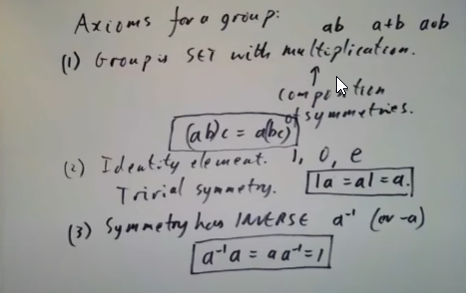 Axioms for a group: ab a+b a∘b
(1) Group is SET with multiplication.
↑
composition
of symmetries.
(ab)c = a(bc)
(2) Identity element. 1, 0, e
Trivial symmetry. 1a = a1 = a.
(3) Symmetry has INVERSE a⁻¹ (or -a)
a⁻¹a = aa⁻¹ = 1